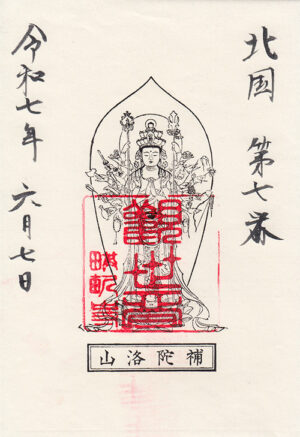 北国 第七番
觀世音
補陀洛山
令和七年 六月七日